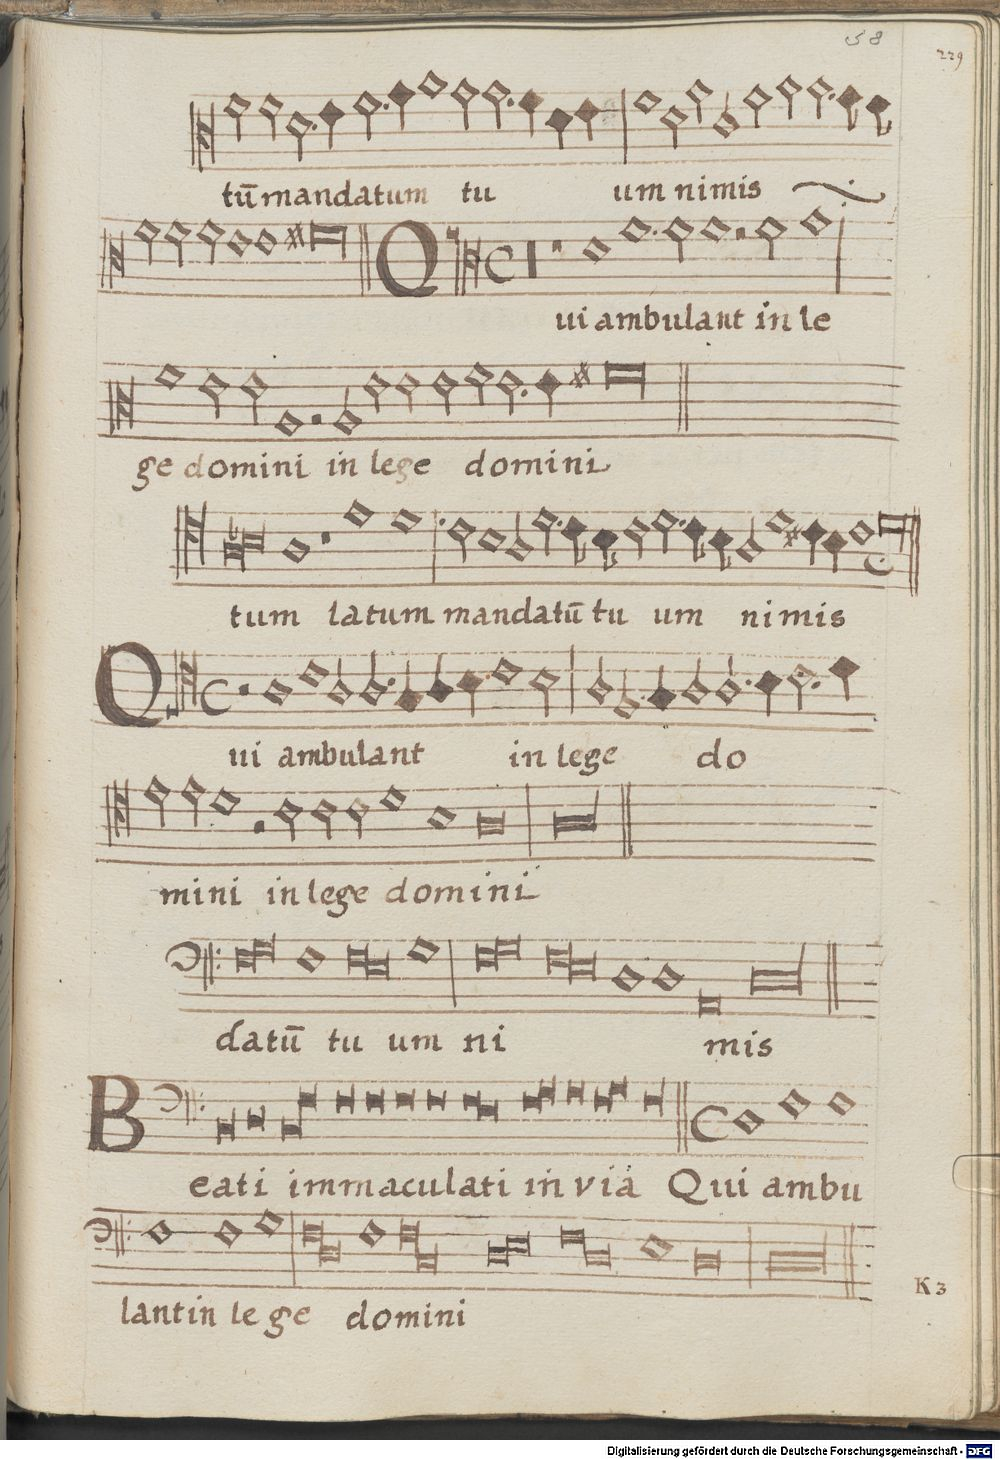 58
229
tū mandatum tu um nimis
Qui ambulant in le
ge domini in lege domini
tum latum mandatū tu um nimis
Qui ambulant in lege do
mini in lege domini
datū tu um ni mis
Beati immaculati in via Qui ambu
lant in lege domini
K3
Digitalisierung gefördert durch die Deutsche Forschungsgemeinschaft - DFG